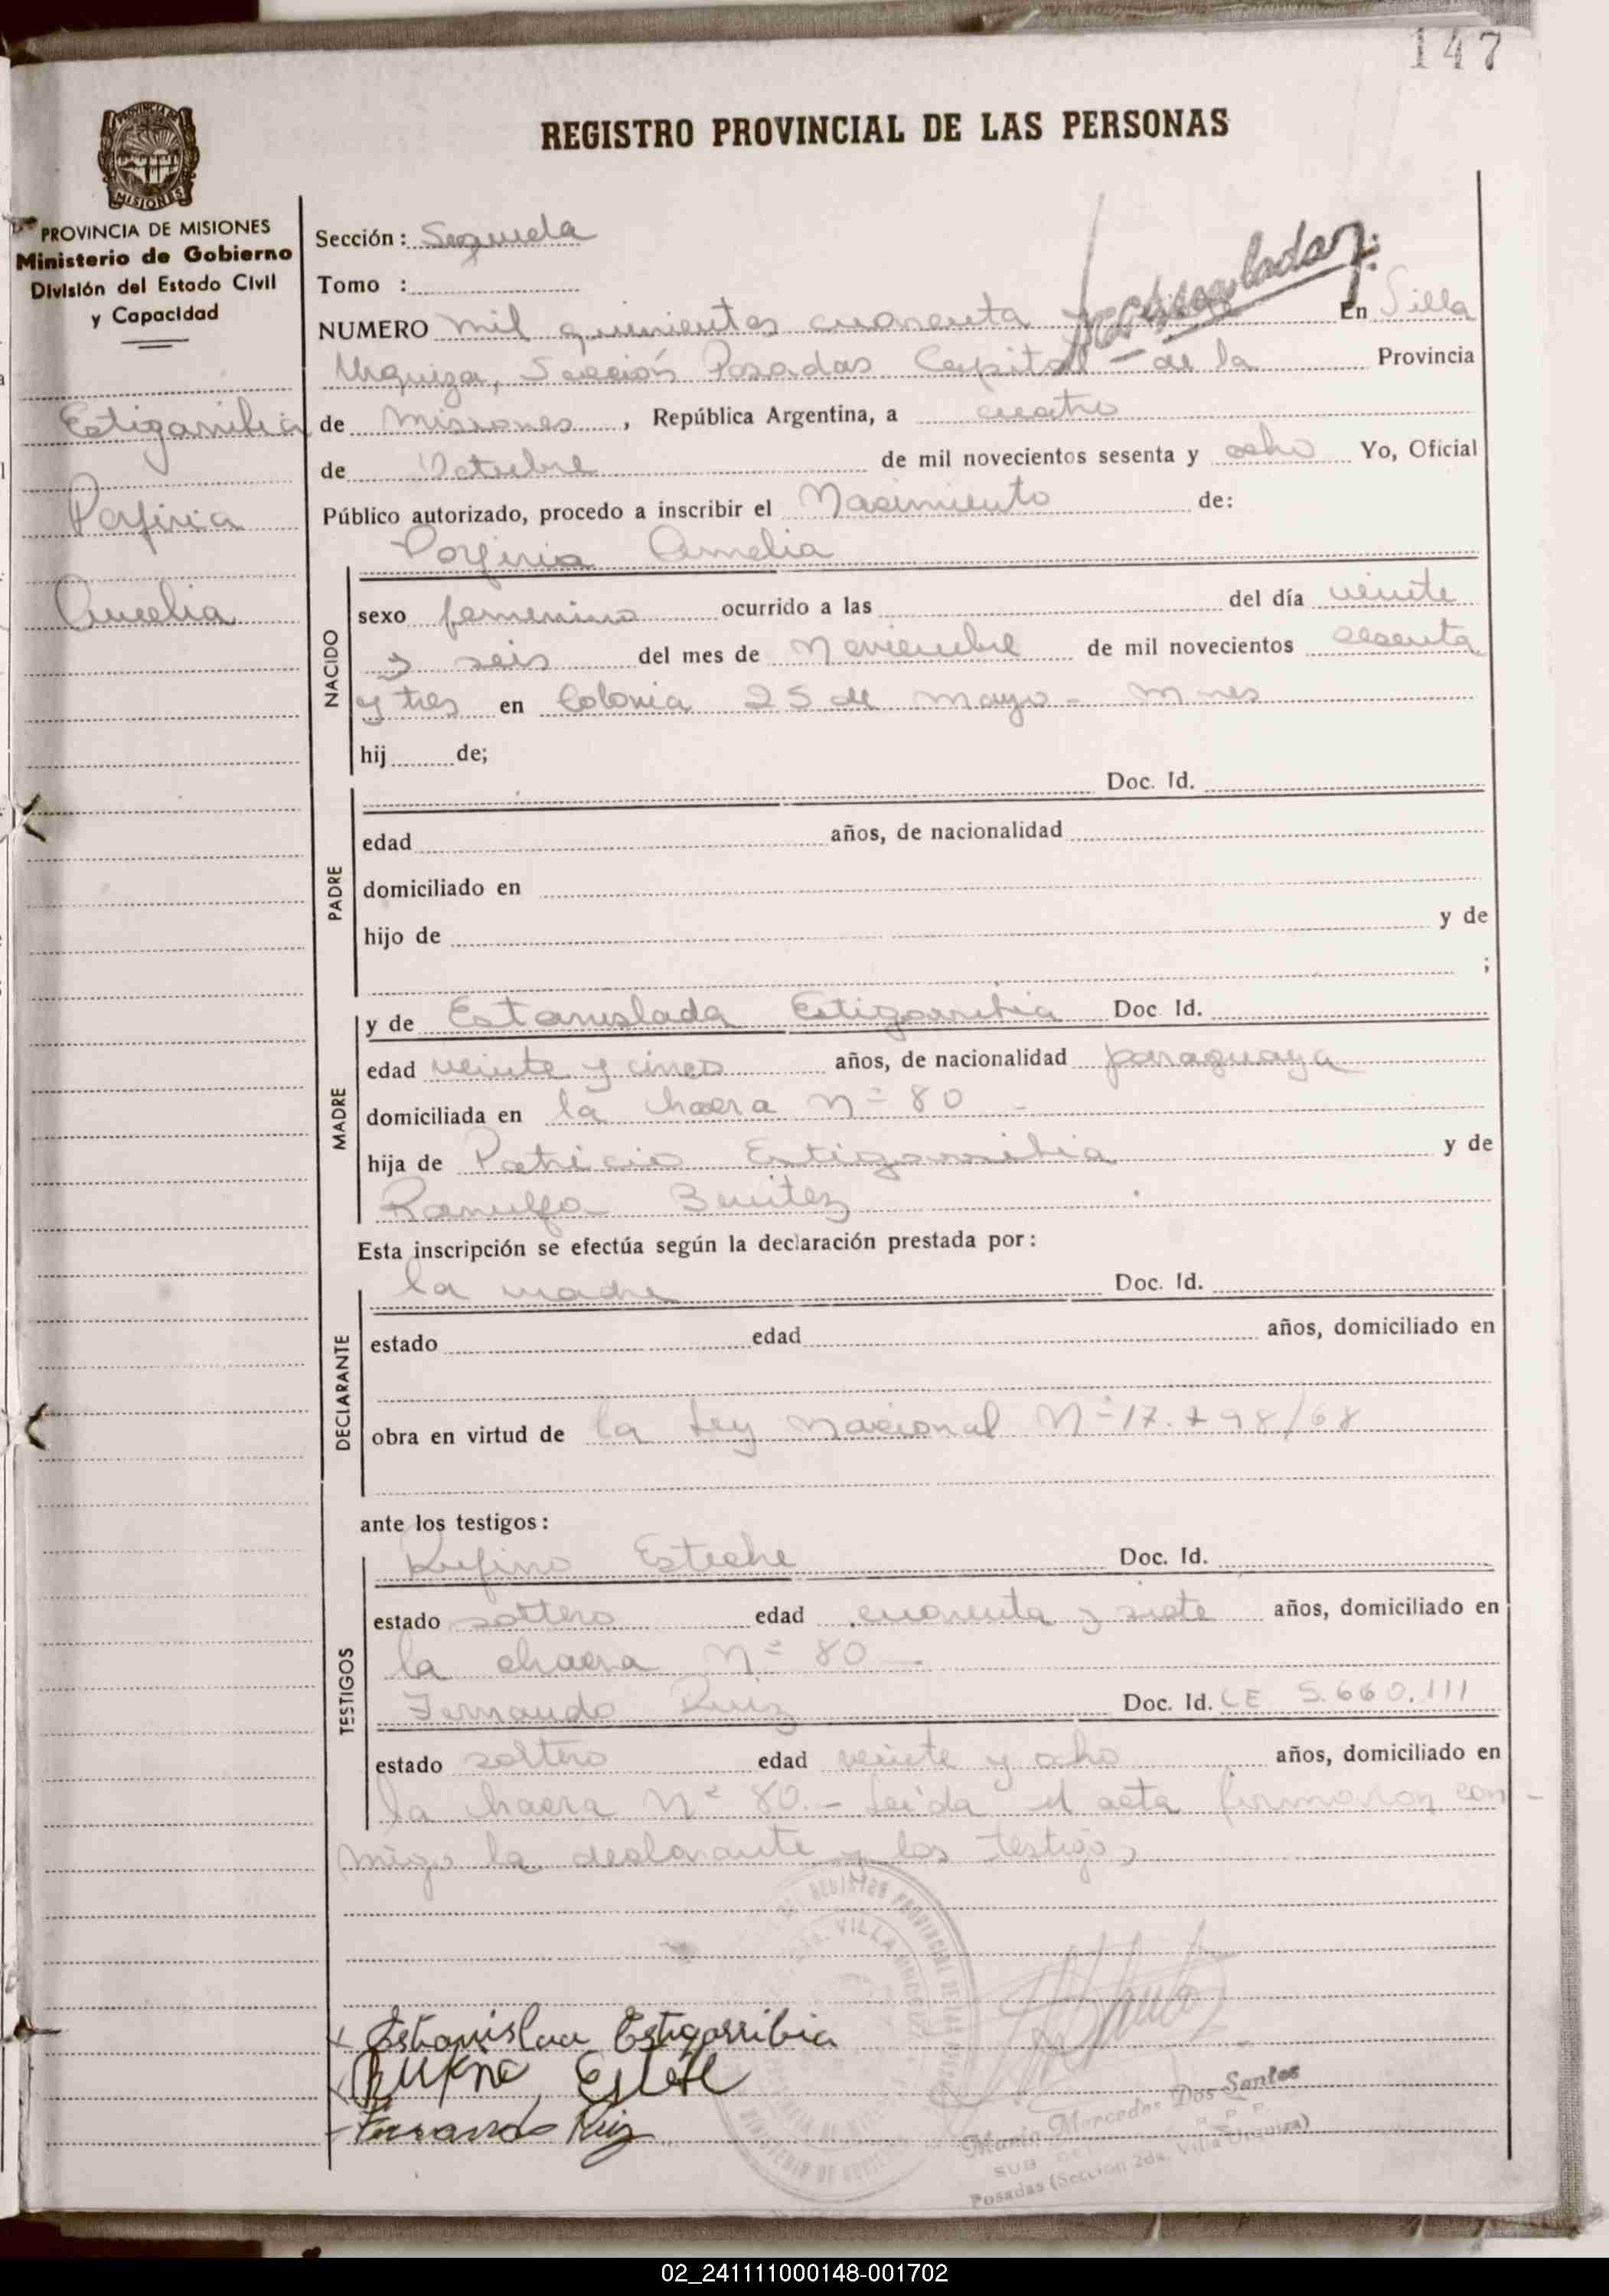 147
REGISTRO PROVINCIAL DE LAS PERSONAS
PROVINCIA DE MISIONES
Ministerio de Gobierno
División del Estado Civil
y Capacidad
Estigarribia
Porfiria
Amelia
Sección: Segunda
Tomo :
NUMERO mil quinientos cuarenta En Villa
Urquiza, Sección Posadas Capital - de la Provincia
de Misiones, República Argentina, a cuatro
de Octubre de mil novecientos sesenta y ocho Yo, Oficial
Público autorizado, procedo a inscribir el Nacimiento de:
Porfiria Amelia
NACIDO
sexo femenino ocurrido a las del día veinte
y seis del mes de Noviembre de mil novecientos sesenta
y tres en Colonia 25 de mayo - Mnes
hij de;
PADRE
Doc. Id.
edad años, de nacionalidad
domiciliado en
hijo de y de
;
MADRE
y de Estanislada Estigarribia Doc. Id.
edad veinte y cinco años, de nacionalidad paraguaya
domiciliada en la chacra Nº 80 -
hija de Patricio Estigarribia y de
Ranulfa Benitez
Esta inscripción se efectúa según la declaración prestada por:
DECLARANTE
la madre Doc. Id.
estado edad años, domiciliado en
obra en virtud de la Ley Nacional Nº 17.798/68
ante los testigos:
TESTIGOS
Rufino Esteche Doc. Id.
estado soltero edad cuarenta y siete años, domiciliado en
la chacra Nº 80 -
Fernando Ruiz Doc. Id. CE 5.660.111
estado soltero edad veinte y ocho años, domiciliado en
la chacra Nº 80.- Leída el acta firmaron con-
migo la declarante y los testigos
Estanislaa Estigarribia
Fernando Ruiz
Maria Mercedes Dos Santos
Posadas (Sección 2da. Villa Urquiza)
02_241111000148-001702